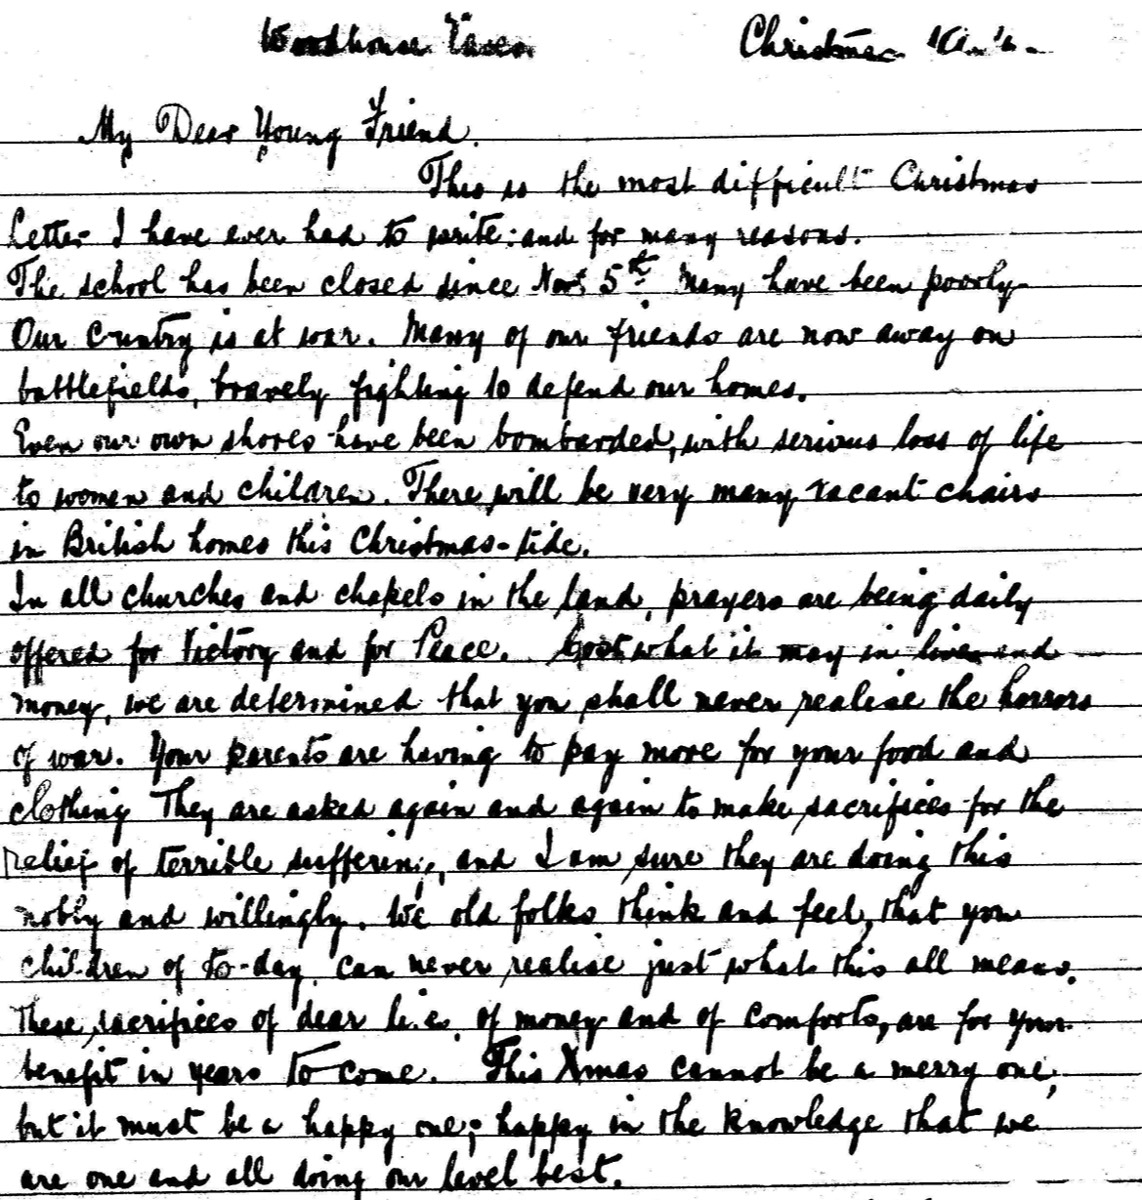 Woodhouse Christmas
My Dear Young Friend.
This is the most difficult Christmas
Letter I have ever had to write: and for many reasons.
The school has been closed since Nov. 5th. Many have been poorly
Our Country is at war. Many of our friends are now away on
battlefields, bravely fighting to defend our homes.
Even our own shores have been bombarded, with serious loss of life
to women and children. There will be very many vacant chairs
in British homes this Christmas-tide.
In all churches and chapels in the land, prayers are being daily
offered for Victory and for Peace. Cost what it may in lives and
money, we are determined that you shall never realise the horrors
of war. Your parents are having to pay more for your food and
clothing They are asked again and again to make sacrifices for the
relief of terrible suffering, and I am sure they are doing this
nobly and willingly. We old folks think and feel, that you
children of to-day, can never realise just what this all means.
These sacrifices of dear lives, of money and of comforts, are for your
benefit in years to come. This Xmas cannot be a merry one,
but it must be a happy one; happy in the knowledge that we
are one and all doing our level best.